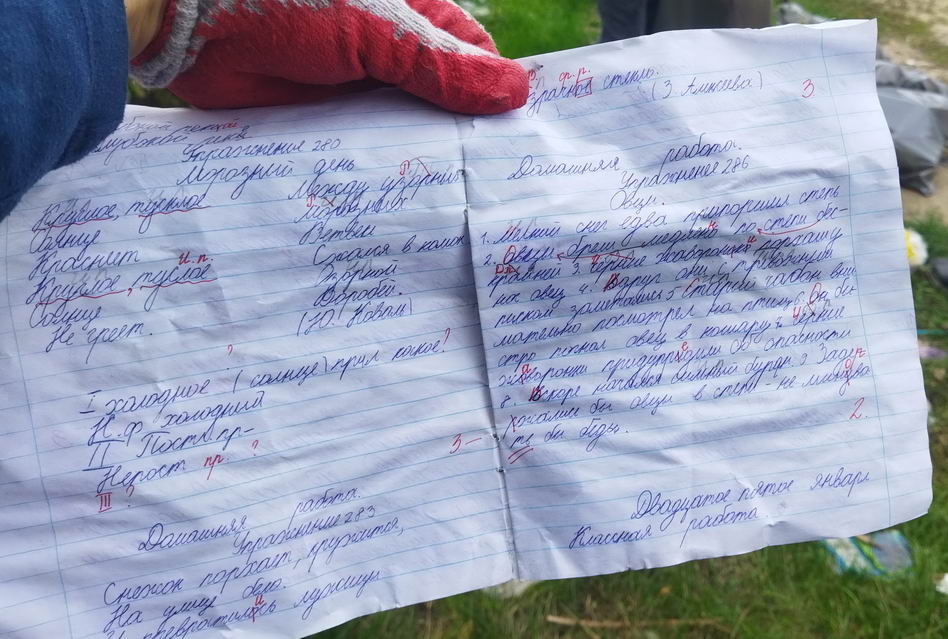 Упражнение 280
Морозный день
Круглое, тусклое
Солнце
Краснеет
и.п.
Круглое, тусклое
Солнце
Не греет.
Между узорных
Морозных
Ветвей
Сжался в комок
Зоркой
Воробей.
(Ю. Коваль)
?
I холодное (солнце) прил какое?
Н.ф. холодный
II Пост. пр-
Непост пр. ?
III ?
3-
Домашняя работа.
Упражнение 283
Снежок порхает, кружится,
На улице бело.
И превратились лужицы
ф. р.
стекло.
(З. Александрова)
3
Домашняя работа.
Упражнение 286
Овцы.
1. Мелкий снег едва припорошил степь
2. Овцы брели медлено по степи бес-
крайней 3. Черние жаворонки
ник овец 4. Вдруг они с тревожным
писком заметались 5 Старый чабан вни
мательно посмотрел на птиц 6. Он бы
стро погнал овец в кошару 7 Черние
жаворонки придупредили об опасности
8. Вскоре начался сильный буран. 9 Задер
жались бы овцы в степи - не миновать
бы беды.
2.
Двадцатое пятое января
Классная работа